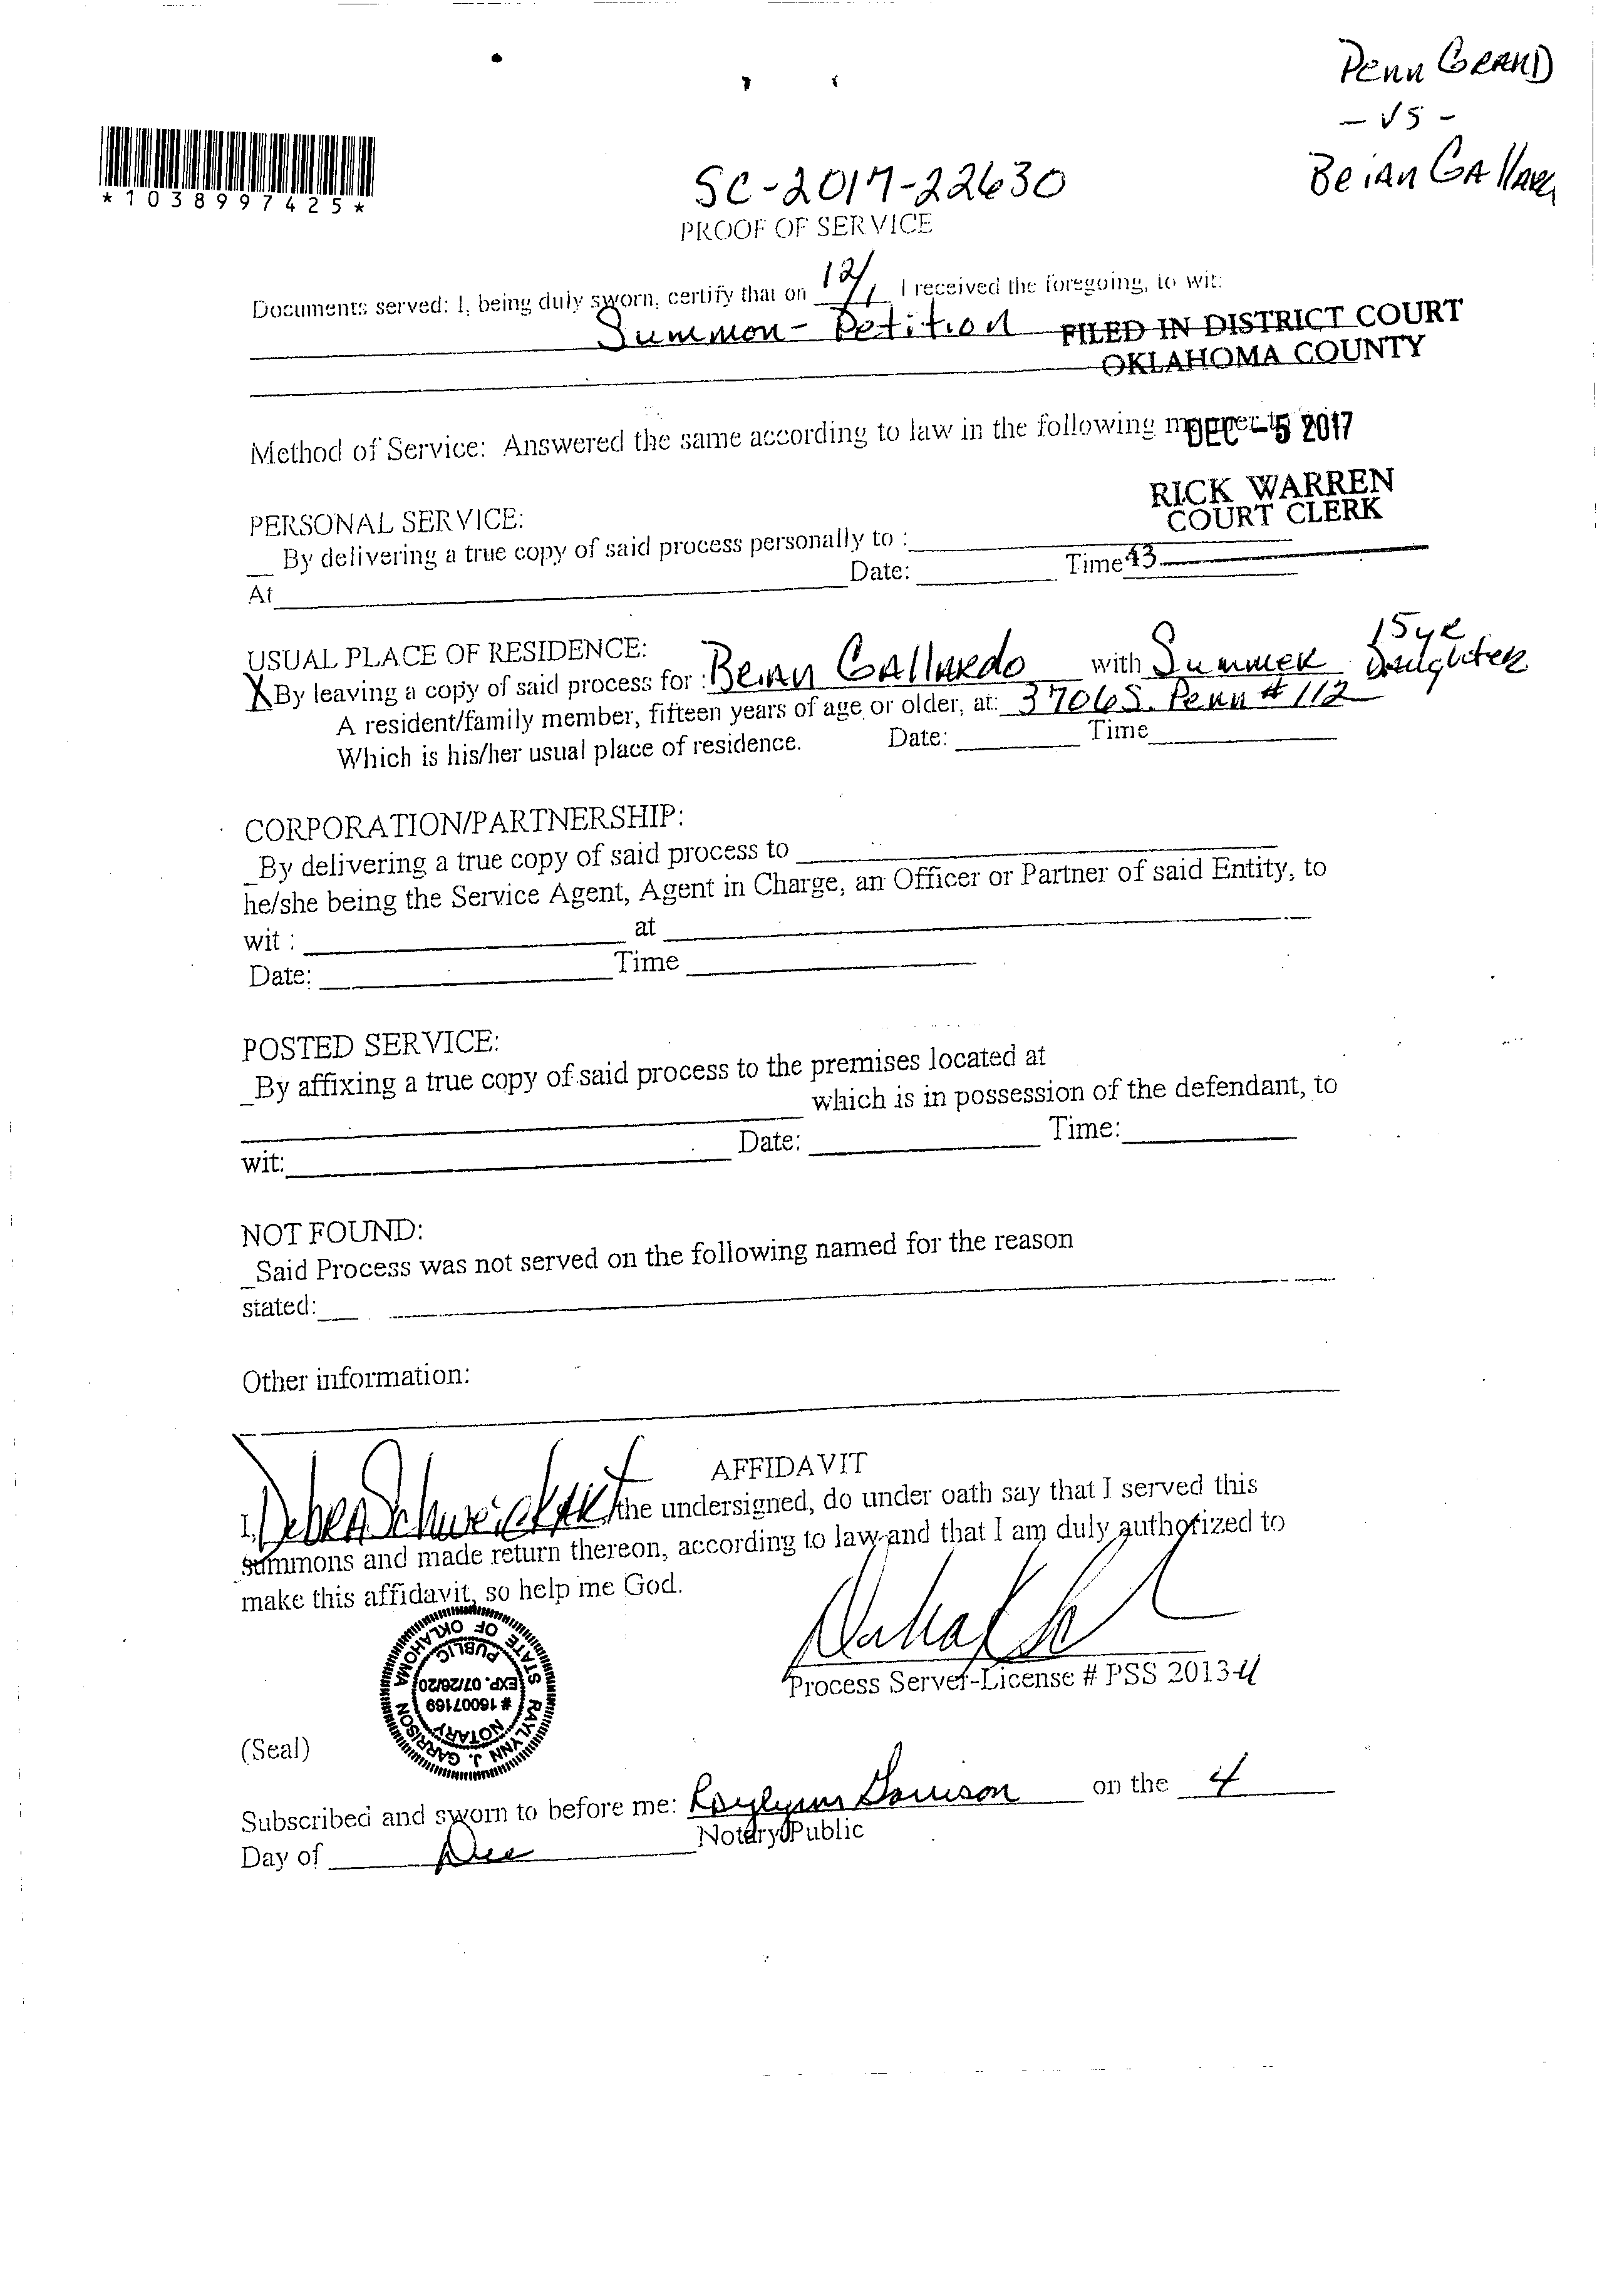 Penn Grand
- vs -
Brian Gallard
*1038997425*
SC-2017-22630
PROOF OF SERVICE
Documents served: I, being duly sworn, certify that on 12/1 I received the foregoing, to wit:
Summon - Petition
FILED IN DISTRICT COURT
OKLAHOMA COUNTY
Method of Service: Answered the same according to law in the following
DEC -5 2017
RICK WARREN
COURT CLERK
PERSONAL SERVICE:
__ By delivering a true copy of said process personally to :
At Date: Time 43
USUAL PLACE OF RESIDENCE:
X By leaving a copy of said process for : Brian Gallardo with Summer 15 yr Daughter
A resident/family member, fifteen years of age or older, at: 3706 S. Penn # 112
Which is his/her usual place of residence. Date: Time
CORPORATION/PARTNERSHIP:
_By delivering a true copy of said process to
he/she being the Service Agent, Agent in Charge, an Officer or Partner of said Entity, to
wit : at
Date: Time
POSTED SERVICE:
_By affixing a true copy of said process to the premises located at
which is in possession of the defendant, to
wit: Date: Time:
NOT FOUND:
_Said Process was not served on the following named for the reason
stated:
Other information:
AFFIDAVIT
I, Debra Schweickart the undersigned, do under oath say that I served this
summons and made return thereon, according to law and that I am duly authorized to
make this affidavit, so help me God.
Process Server-License # PSS 2013-4
RAYLYNN J. GARRISON
NOTARY
# 16007169
EXP. 07/26/20
PUBLIC
STATE OF OKLAHOMA
(Seal)
Subscribed and sworn to before me: Raylynn Garrison on the 4
Notary Public
Day of Dec